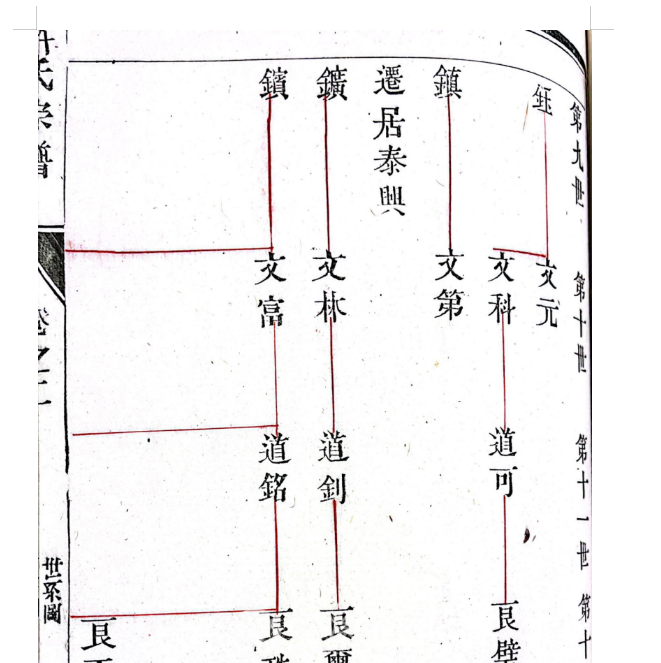 第九世
第十世
第十一世
第十
鈺
文元
文科
道可
良璧
鎮
文第
遷居泰興
鑛
文林
道釗
良
鑌
文富
道銘
良
良
氏宗譜
卷之二
世系圖